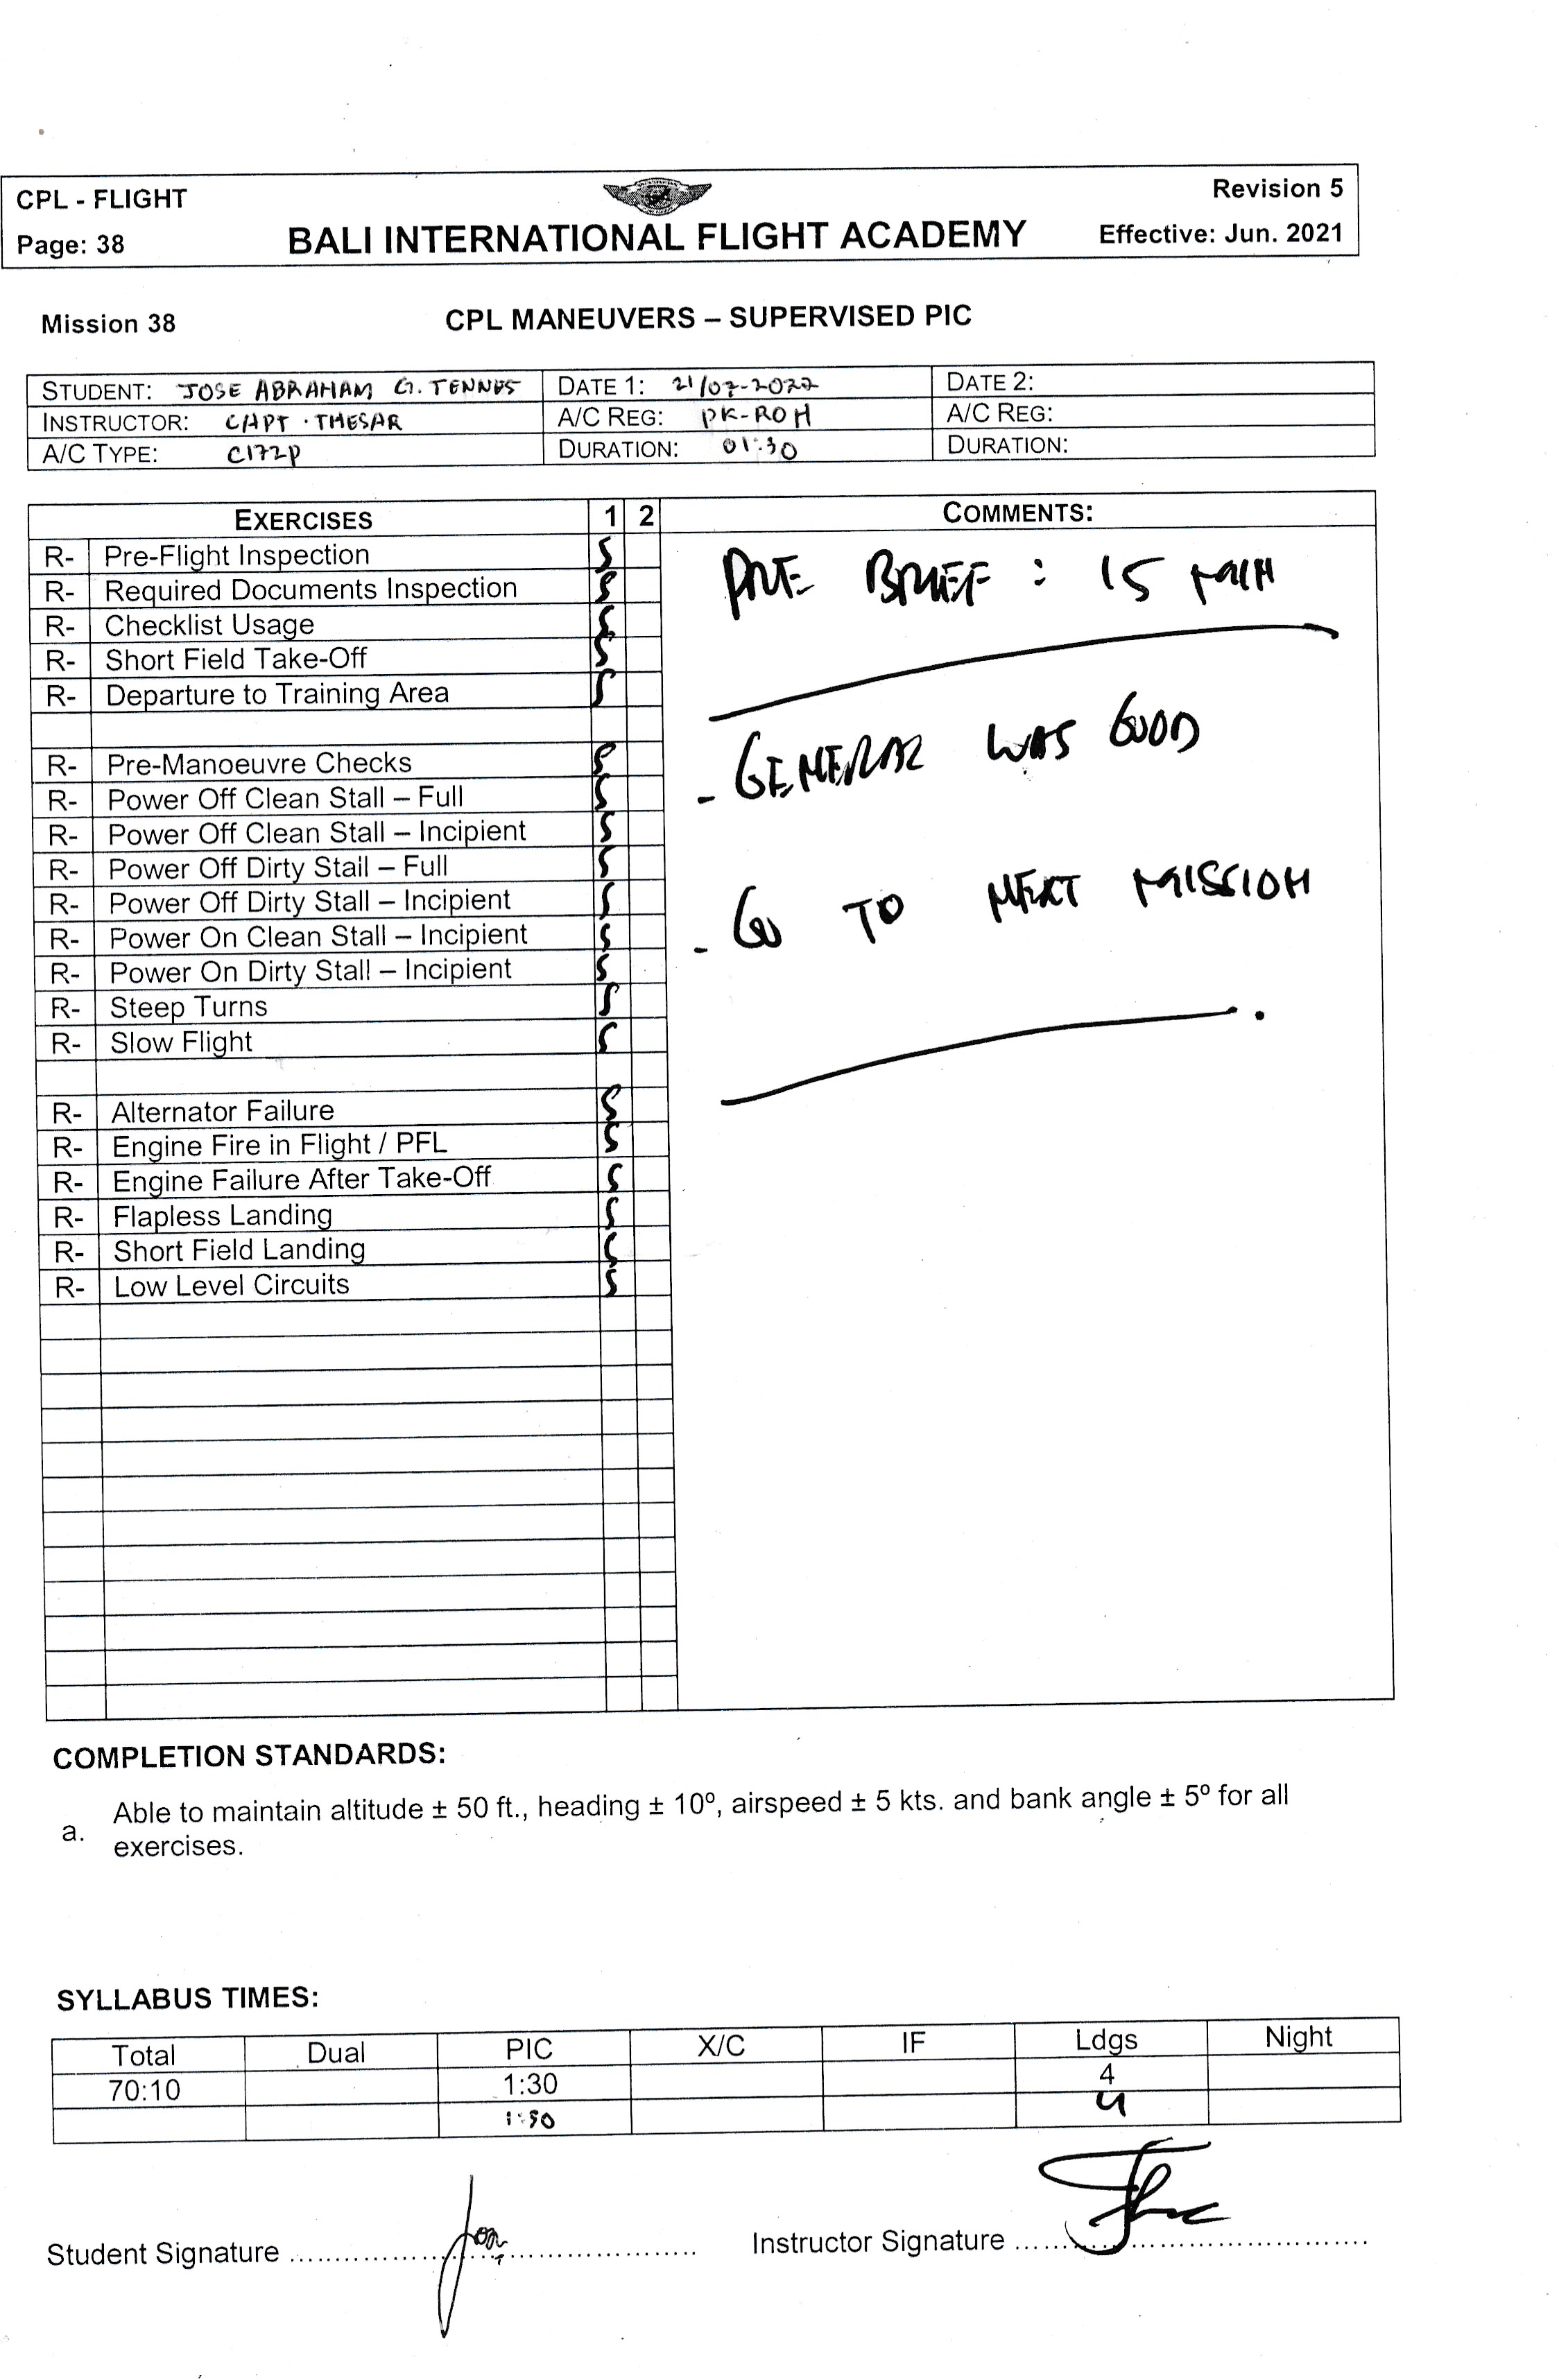 CPL - FLIGHT
Revision 5
Page: 38
BALI INTERNATIONAL FLIGHT ACADEMY
Effective: Jun. 2021
Mission 38
CPL MANEUVERS – SUPERVISED PIC
STUDENT: JOSE ABRAHAM G. TENNES DATE 1: 21/07-2022 DATE 2:
INSTRUCTOR: CAPT. THESAR A/C REG: PK-ROH A/C REG:
A/C TYPE: C172P DURATION: 01:30 DURATION:
EXERCISES 1 2 COMMENTS:
R- Pre-Flight Inspection S
R- Required Documents Inspection S
PRE BRIEF : 15 MIN
R- Checklist Usage S
R- Short Field Take-Off S
R- Departure to Training Area S
R- Pre-Manoeuvre Checks S
- GENERAL WAS GOOD
R- Power Off Clean Stall – Full S
R- Power Off Clean Stall – Incipient S
R- Power Off Dirty Stall – Full S
R- Power Off Dirty Stall – Incipient S
- GO TO NEXT MISSION
R- Power On Clean Stall – Incipient S
R- Power On Dirty Stall – Incipient S
R- Steep Turns S
R- Slow Flight S
R- Alternator Failure S
R- Engine Fire in Flight / PFL S
R- Engine Failure After Take-Off S
R- Flapless Landing S
R- Short Field Landing S
R- Low Level Circuits S
COMPLETION STANDARDS:
a. Able to maintain altitude ± 50 ft., heading ± 10º, airspeed ± 5 kts. and bank angle ± 5º for all
exercises.
SYLLABUS TIMES:
Total Dual PIC X/C IF Ldgs Night
70:10 1:30 4
1:30 4
Student Signature ........................................
Instructor Signature ........................................